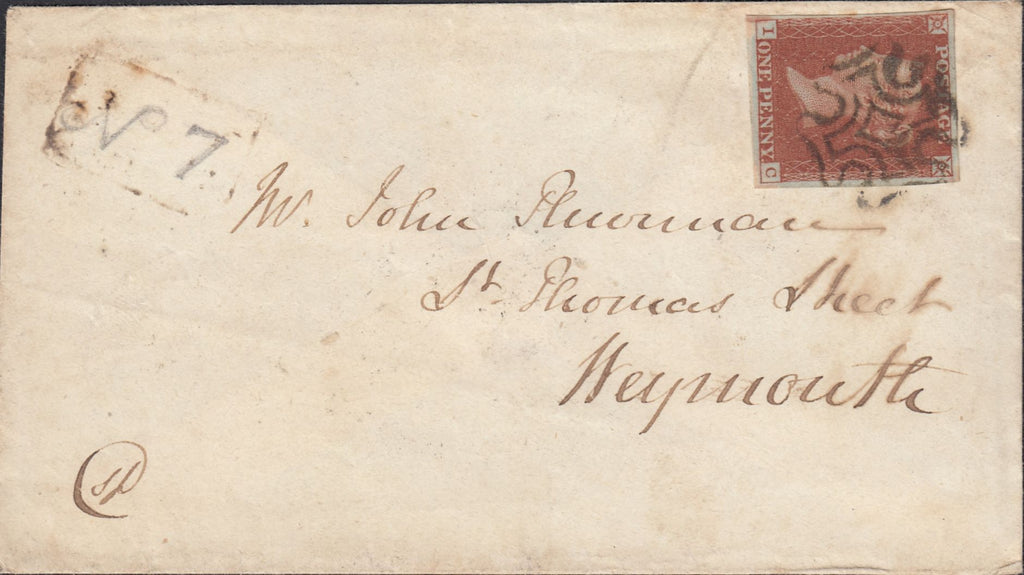 No 7.
POSTAGE
I ONE PENNY C
Mr. John Thurman
St Thomas Street
Weymouth